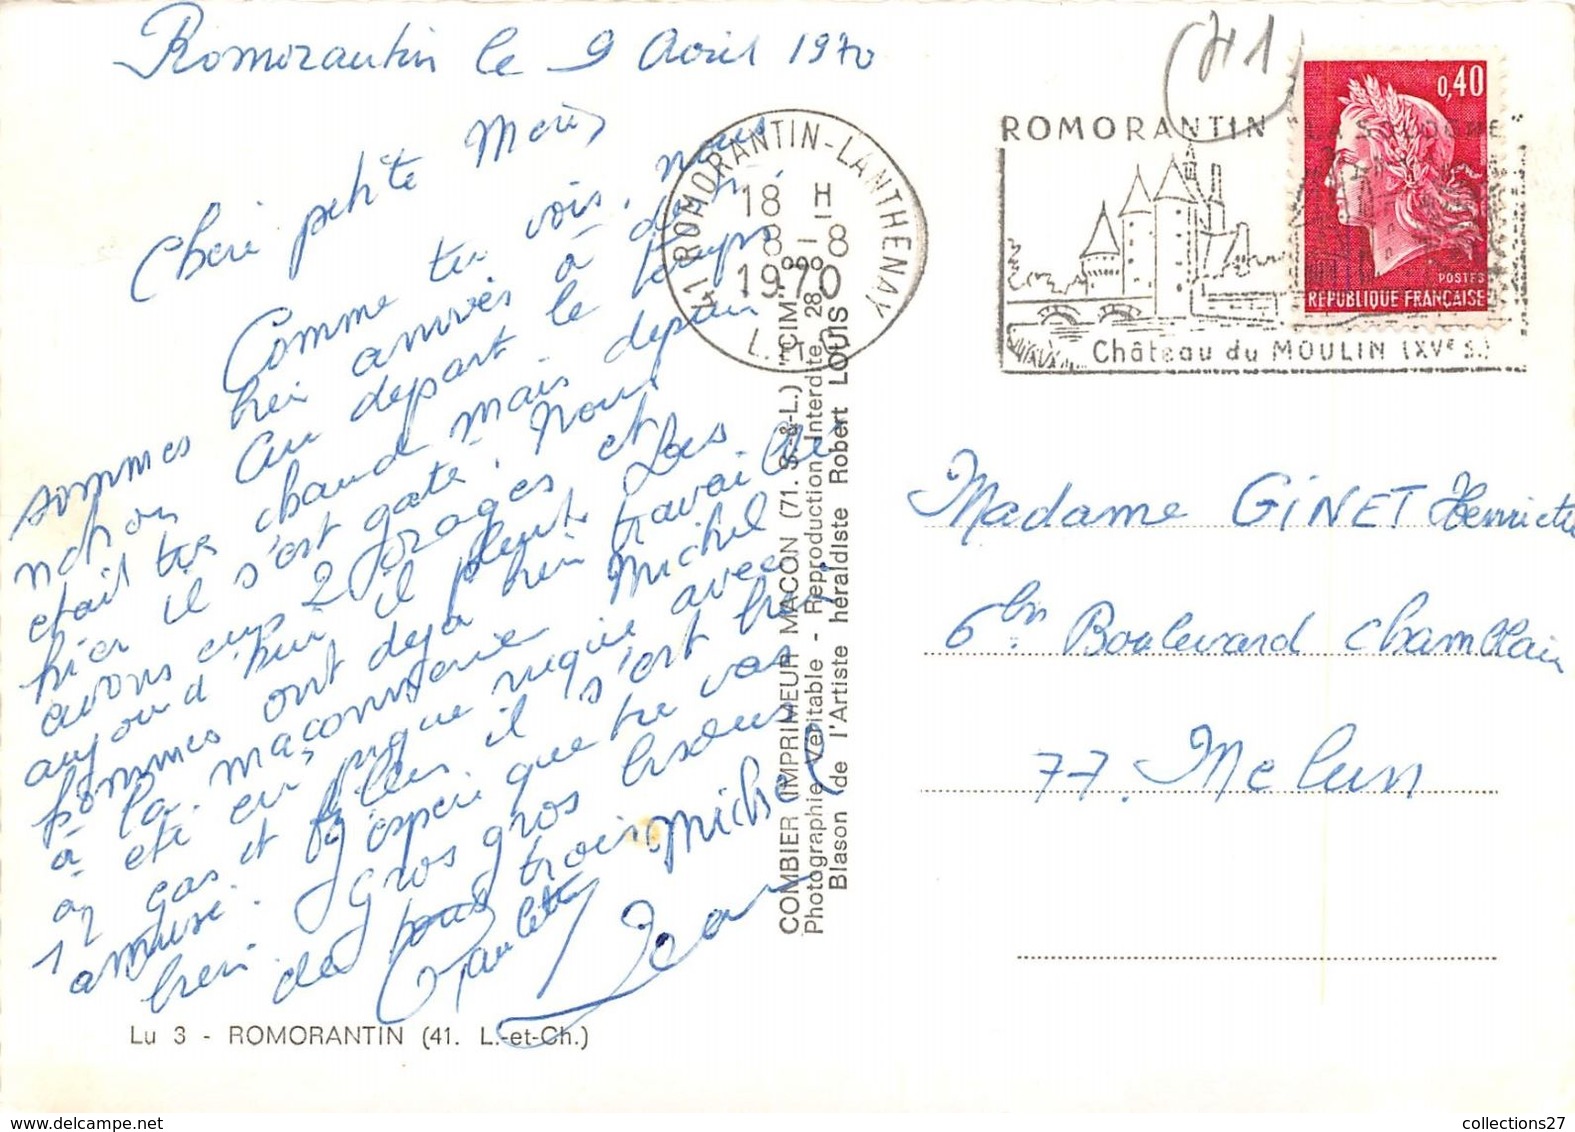 Romorantin le 9 Avril 1970
Chère petite Mère
Comme tu vois, nous
sommes bien arrivés à
au départ le temps
était très chaud mais depuis
hier il s'est gaté. Nous
avons eus 2 orages et
aujourd'hui il pleut. Les
hommes ont déja bien travaillé
à la maçonnerie Michel
a été en pique nique avec
12 gas et filles il s'est bien
amusé. J'espère que tu vas
bien. Gros gros bisous
de tous trois Michel
Paulette
Jean
Lu 3 - ROMORANTIN (41. L.-et-Ch.)
COMBIER IMPRIMEUR MACON (71. S.-&-L.) "CIM"
Photographie Véritable - Reproduction Interdite 28
Blason de l'Artiste héraldiste Robert LOUIS
41 ROMORANTIN-LANTHENAY
18 H
8 - 8
1970
L. ET C.
(41)
ROMORANTIN "LA SOLOGNE"
Château du MOULIN (XVe S.)
0,40
POSTES
REPUBLIQUE FRANÇAISE
Madame GINET Henriette
6 bis Boulevard Chamblain
77. Melun
collections27